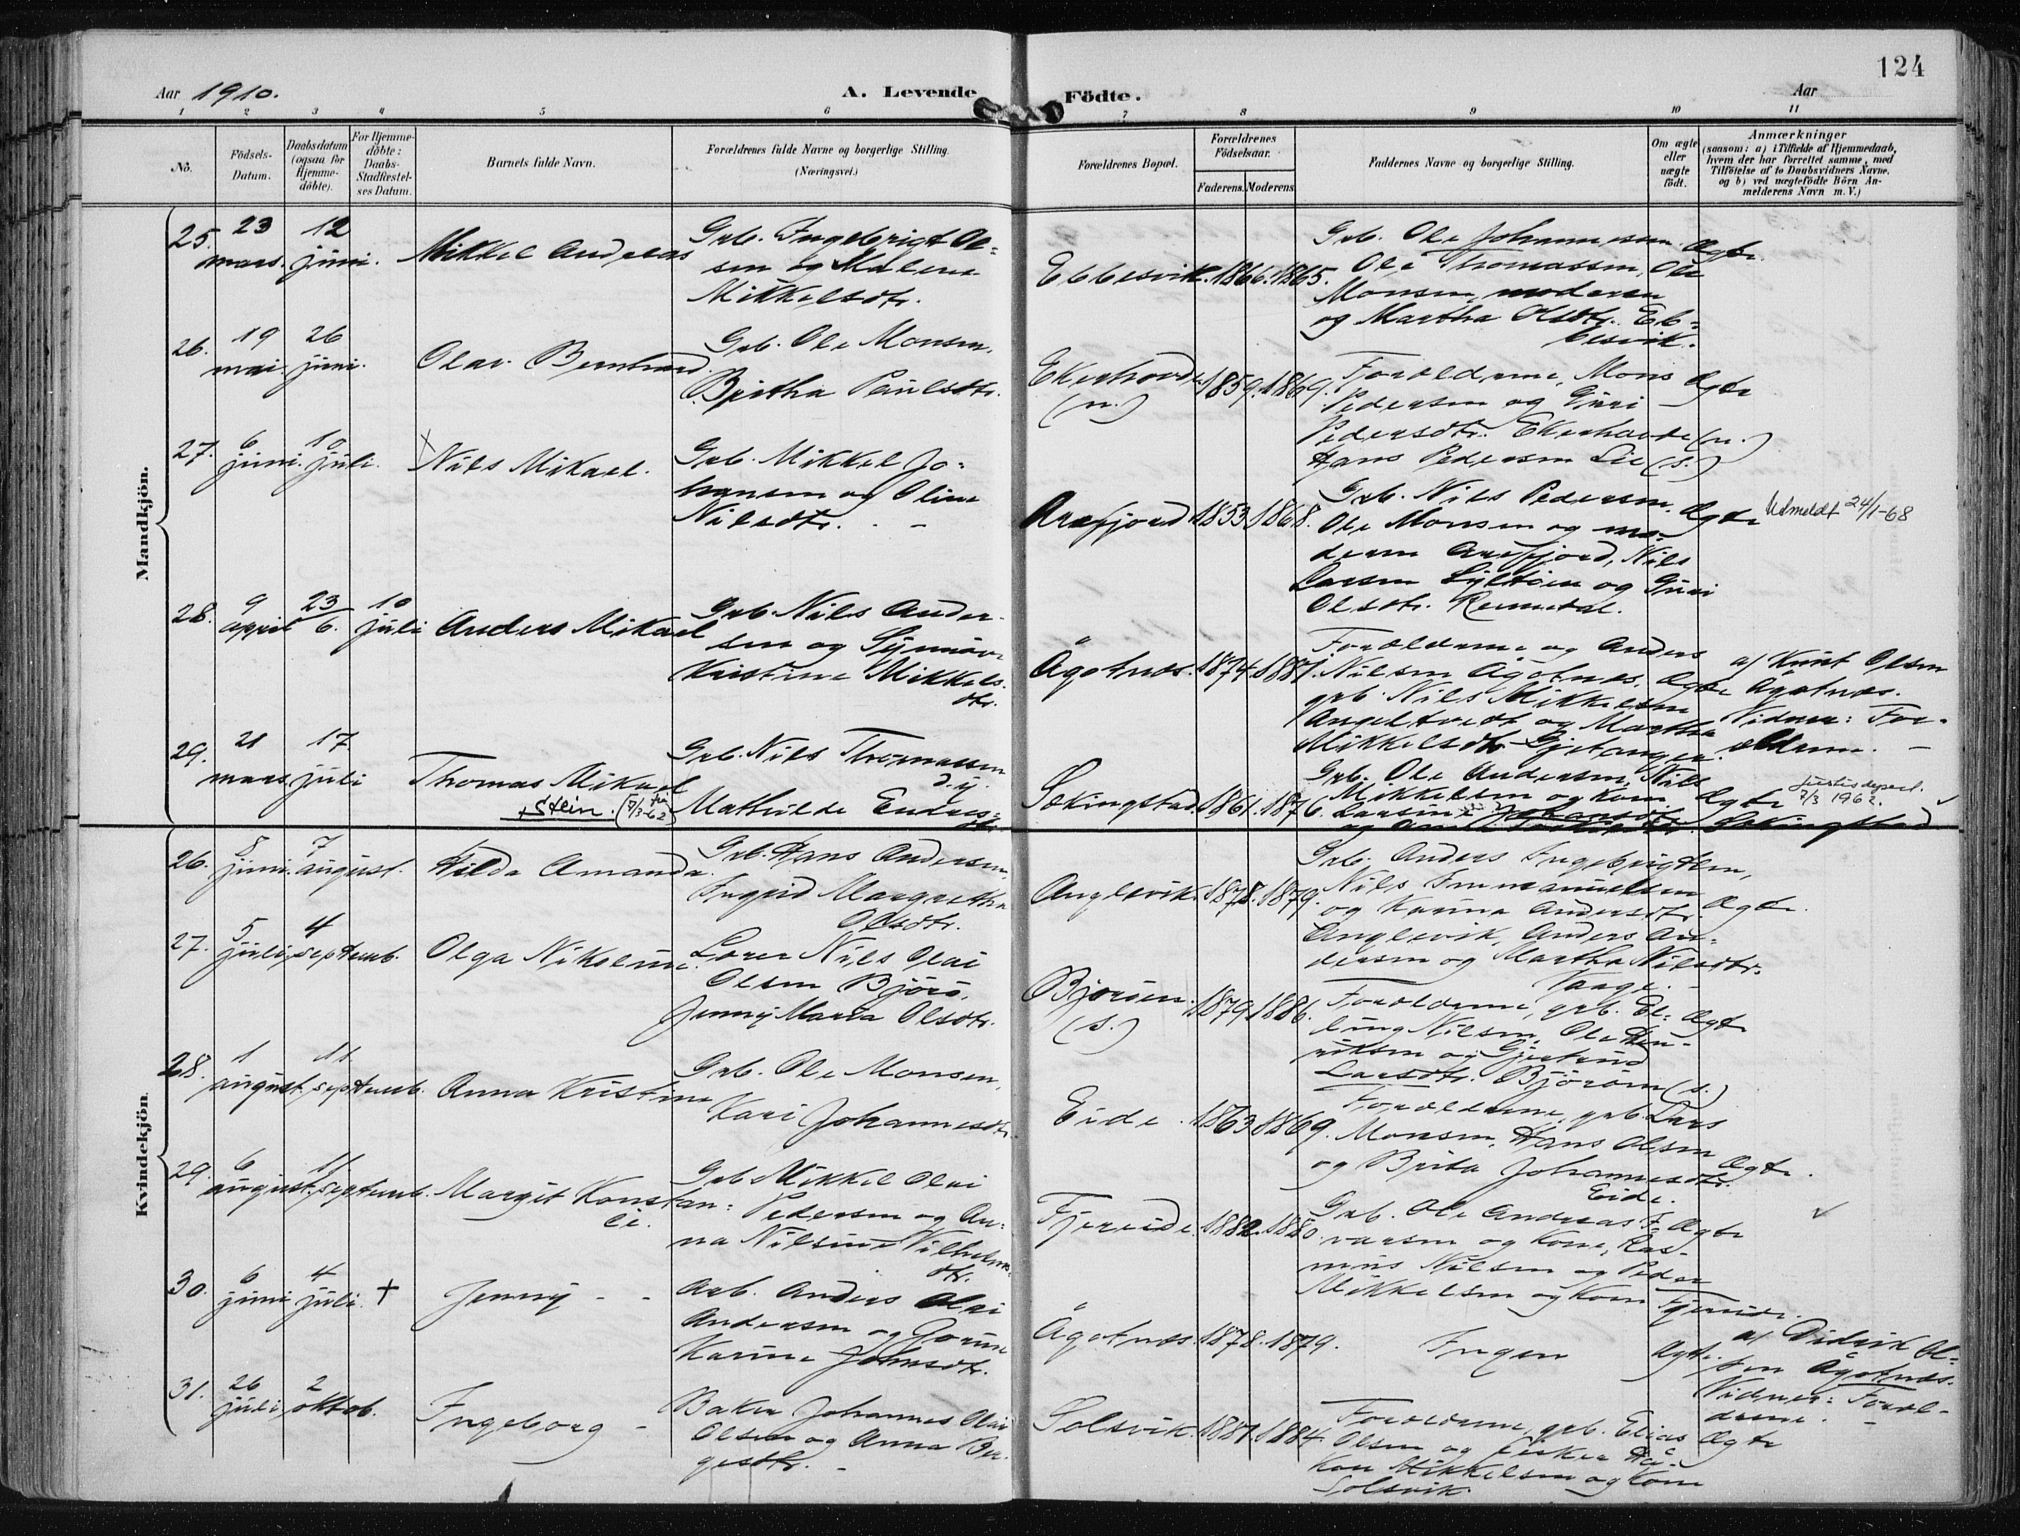 124
Aar 1910.
A. Levende Födte.
Aar
1 2 3 4 5 6 7 8 9 10 11
No.
Födsels-
Datum.
Daabsdatum
(ogsaa for
Hjemme-
döbte).
For Hjemme-
döbte:
Daabs-
Stadfæstel-
ses Datum.
Barnets fulde Navn.
Forældrenes fulde Navne og borgerlige Stilling.
(Næringsvei.)
Forældrenes Bopæl.
Forældrenes
Födselsaar.
Faderens. Moderens.
Faddernes Navne og borgerlige Stilling.
Om ægte
eller
uægte
födt.
Anmærkninger
(saasom: a) i Tilfælde af Hjemmedaab,
hvem der har forrettet samme, med
Tilföielse af to Daabsvidners Navne,
og b) ved uægtefödte Börn An-
melderens Navn m. V.)
Mandkjön.
25. 23 mars. 12 juni. Mikkel Andreas
Grb. Ingebrigt Ol-
sen og Malene
Mikkelsdtr.
Ebbesvik. 1866. 1865.
Grb. Ole Johannesen.
Ole Thomassen, Ole
Monsen, moderen
og Martha Olsdtr. Eb-
besvik.
Ægte.
26. 19 mai. 26 juni. Olav Bernhard.
Grb. Ole Monsen.
Britha Paulsdtr.
Ekerhovde (n.) 1859. 1869.
Forældrene, Mons
Pedersen og Guri
Pedersdtr. Ekerhovde (n.)
Hans Pedersen Lie (s.)
Ægte
27. 6 juni. 10 juli. × Nils Mikael.
Grb. Mikkel Jo-
hansen og Oline
Nilsdtr.
Arefjord 1853. 1868.
Grb. Nils Pedersen.
Ole Monsen og mo-
deren Arefjord, Nils
Larsen Syltöen og Guri
Olsdtr.
Ægte
Utmeldt 24/1-68
28. 9 april 23/6. 10 juli Anders Mikael
Grb. Nils Ander-
sen og Synnöve
Kristine Mikkels-
dtr.
Ågotnes. 1874. 1881.
Forældrene og Anders
Nilsen Ågotnes.
grb. Nils Mikkelsen
Angeltvedt og Martha
Mikkelsdtr.
Ægte
a/ Knut Olsen
Ågotnes.
Vidner: For-
ældrene. –
29. 21 mars. 17 juli Thomas Mikael
+ Stein. (7/3-62)
Grb. Nils Thomassen
d.y.
Mathilde Endres-
dtr.
Sækingstad. 1861. 1876.
Grb. Ole Andersen, Nils
Mikkelsen og kone
Sækingstad
Ægte
Justisdepart.
7/3 1962. ✓
Kvindekjön.
26. 8 juni. 7 august. Hilda Amanda.
Grb. Hans Andersen.
Ingrid Margretha
Olsdtr.
Anglevik. 1878. 1879.
Grb. Anders Ingebrigtsen,
Nils Immanuelsen
og Karina Andersdtr.
Anglevik, Anders An-
dersen og Martha Nilsdtr.
Vaage. –
Ægte.
27. 5 juli. 4 septemb. Olga Nikoline.
Nils Olai
Olsen Björö,
Jenny Maria Olsdtr.
Björöen. (s.) 1879. 1886.
Forældrene, grb. El-
ling Nilsen, Ole Hen-
riksen og Gjertrud
Larsdtr. Björöen (s.)
Ægte
28. 1 august. 11 septemb. Anna Kristine
Grb. Ole Monsen.
Kari Johannesdtr.
Eide. 1863. 1869.
Forældrene, grb. Lars
Monsen. Hans Olsen
og Brita Johannesdtr.
Eide.
Ægte.
29. 6 august. 11 septemb. Margit Konstan-
ce.
Grb Mikkel Olai
Pedersen og An-
na Nilsine Vilhelms-
dtr.
Fjereide. 1882. 1880.
Grb. Ole Andreas I-
varsen og kone, Ras-
mus Nilsen og Peder
Mikkelsen og kone Fjereide.
Ægte
✓
30. 6 juni 4 juli. + Jenny – –
Arb. Anders Olai
Andersen og
Karine Johnsdtr.
Ågotnes. 1878. 1879.
Ingen
Ægte.
a/ Didrik Ol-
sen Ågotnes.
Vidner: Foræl-
drene. –
31. 26 juli 2 oktob. Ingeborg –
Baker Johannes Olai
Olsen og Anna Bir-
gesdtr. –
Solsvik. 1881. 1884.
Forældrene, grb. Elias
Olsen og fisker Hå-
kon Mikkelsen og kone
Solsvik.
Ægte